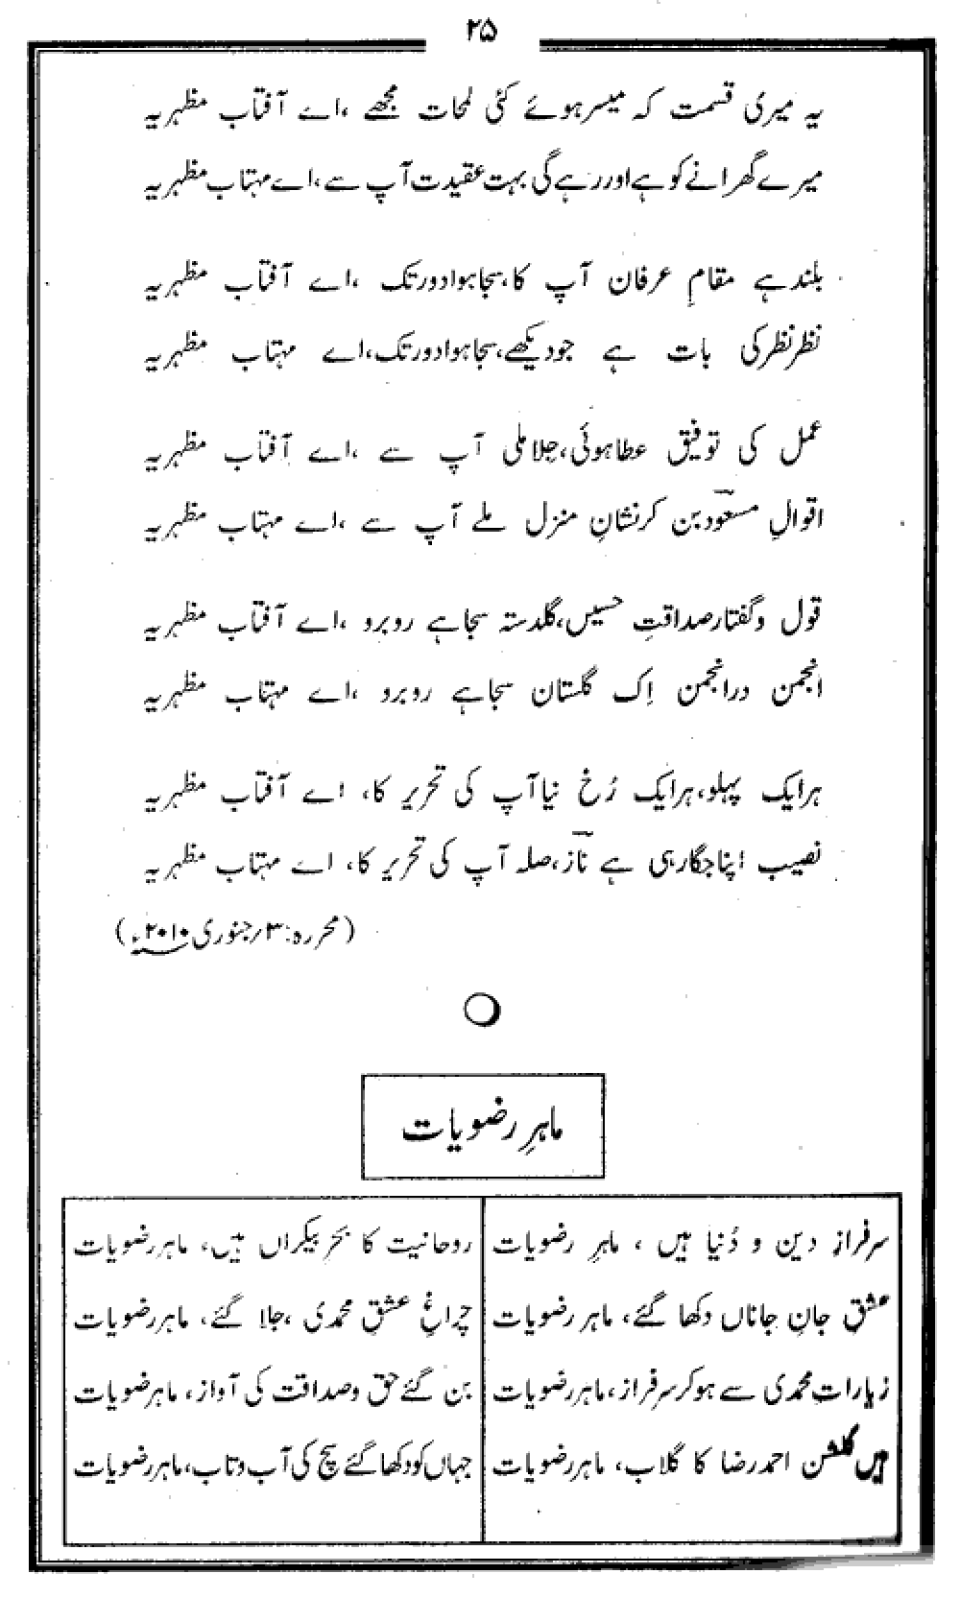 ۲۵
یہ میری قسمت کہ میسر ہوئے کئی لمحات مجھے ،اے آفتاب مظہریہ
میرے گھرانے کو ہے اور رہے گی بہت عقیدت آپ سے ،اے مہتاب مظہریہ
بلند ہے مقامِ عرفان آپ کا،سجا ہوا دور تک ،اے آفتاب مظہریہ
نظر نظر کی بات ہے جو دیکھے،سجا ہوا دور تک،اے مہتاب مظہریہ
عمل کی توفیق عطا ہوئی،جلا ملی آپ سے ،اے آفتاب مظہریہ
اقوالِ مسعود بن کر نشانِ منزل ملے آپ سے ،اے مہتاب مظہریہ
قول و گفتار صداقتِ حسیں،گلدستہ سجا ہے روبرو ،اے آفتاب مظہریہ
انجمن در انجمن اِک گلستان سجا ہے روبرو ،اے مہتاب مظہریہ
ہر ایک پہلو،ہر ایک رُخ نیا آپ کی تحریر کا، اے آفتاب مظہریہ
نصیب اپنا جگا رہی ہے ناز،صلہ آپ کی تحریر کا، اے مہتاب مظہریہ
(محررہ:۳؍جنوری ۲۰۱۰ء)
ماہرِ رضویات
سرفراز دین و دُنیا ہیں ، ماہرِ رضویات روحانیت کا بحرِ بیکراں ہیں، ماہر رضویات
عشق جانِ جاناں دکھا گئے، ماہر رضویات چراغِ عشقِ محمدی ،جلا گئے، ماہر رضویات
زیارات محمدی سے ہو کر سرفراز،ماہر رضویات بن گئے حق و صداقت کی آواز، ماہر رضویات
ہیں گلشن احمد رضا کا گلاب، ماہر رضویات جہاں کو دکھا گئے سچ کی آب و تاب،ماہر رضویات